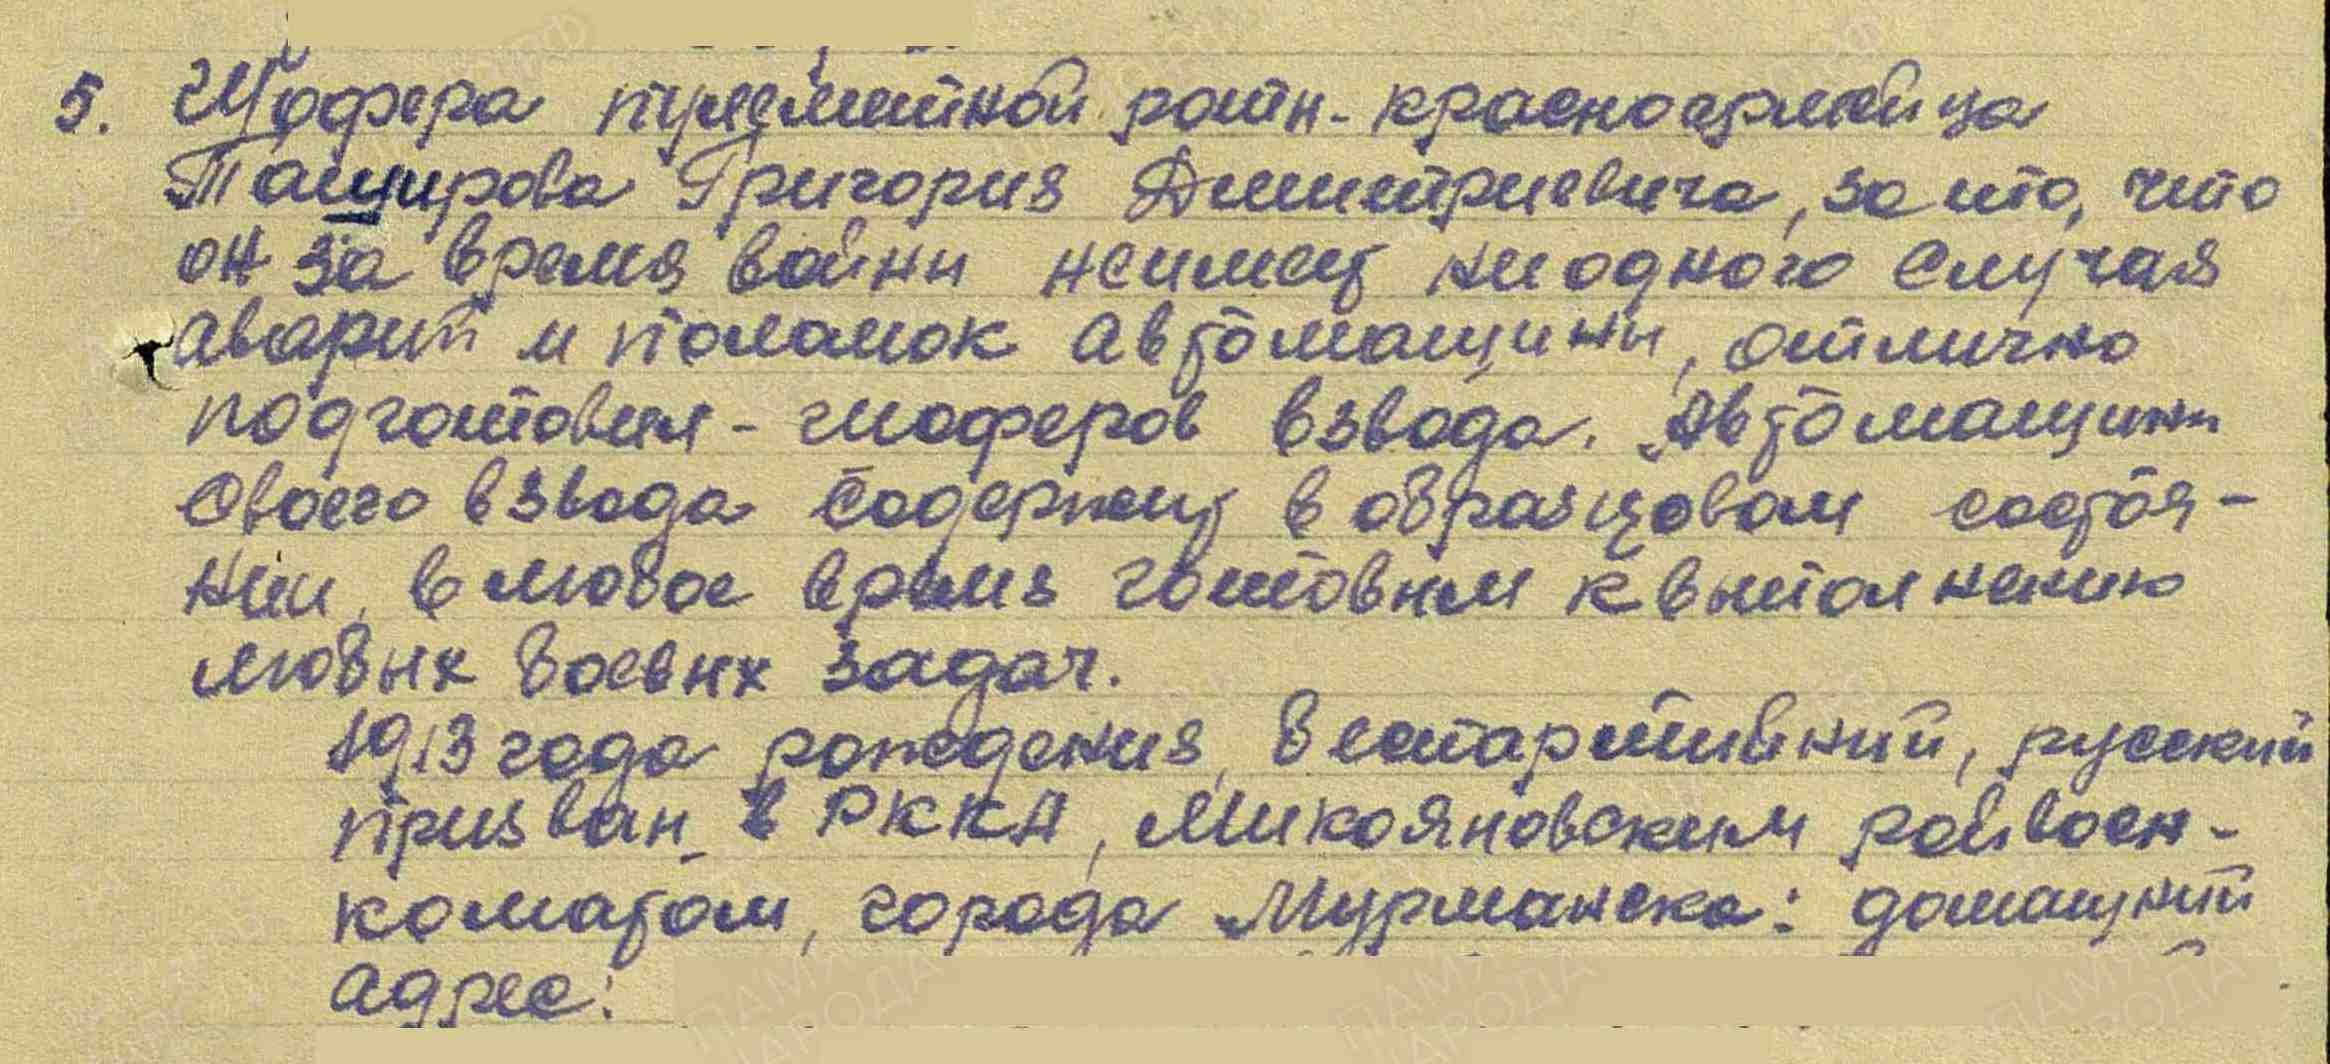 5. Шофера пулеметной роты - красноармейца
Тащирова Григория Дмитриевича, за то, что
он за время войны неимеет ниодного случая
аварий и поламок автомащины, отлично
подготовил - шоферов взвода. Автомащины
своего взвода содержит в образцовом состоя-
нии, в любое время готовым к выполнению
любых боевых задач.
1913 года рождения, беспартийный, русский
призван в РККА, Микояновским райвоен-
коматом, города Мурманска: домащний
адрес: